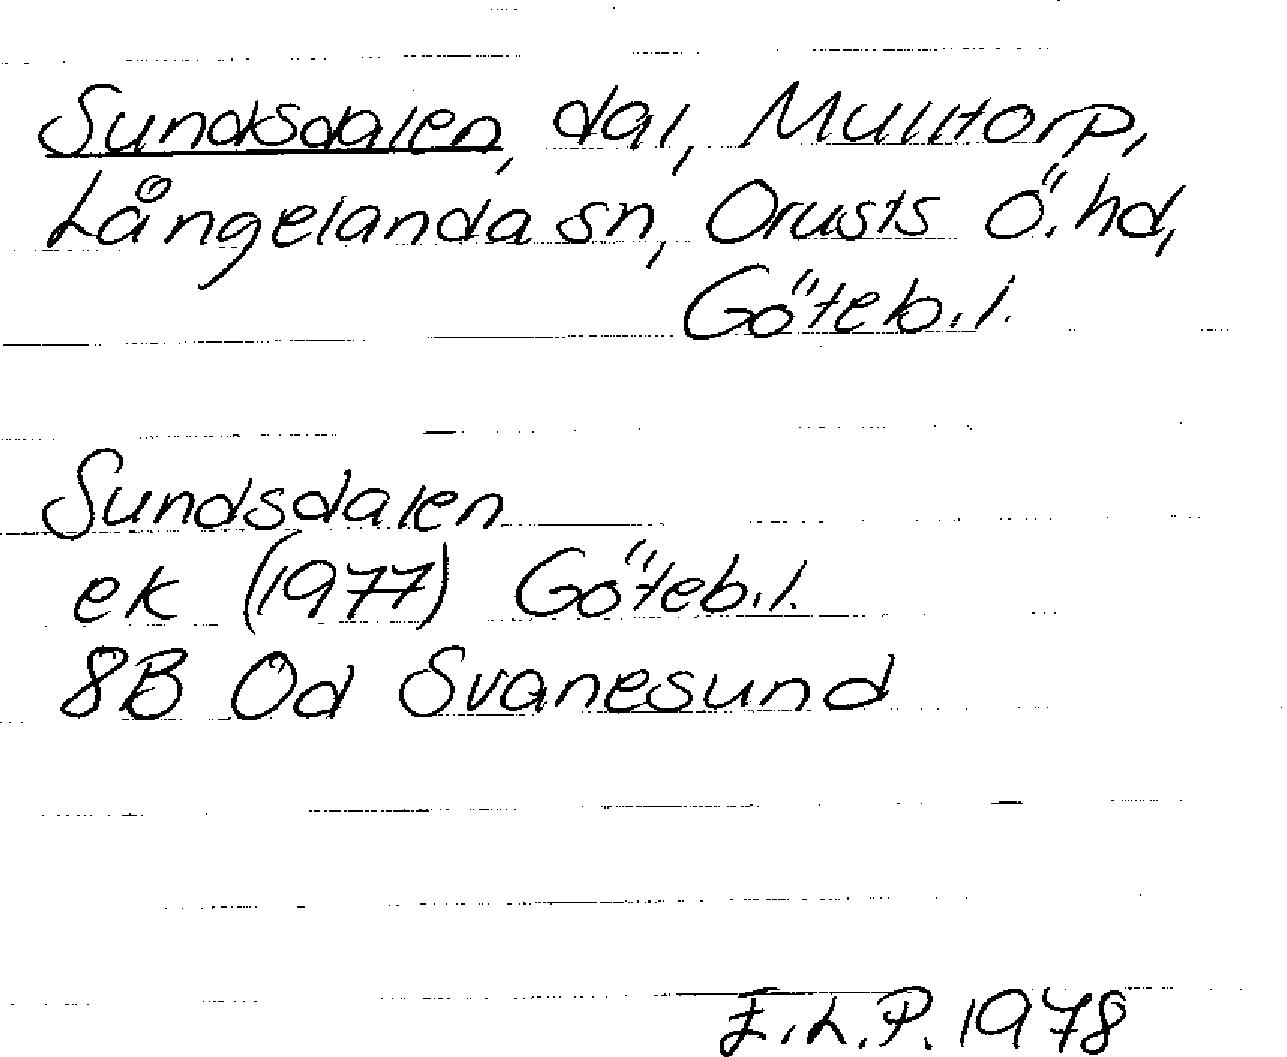 Sundsdalen, dal, Mulltorp,
Långelanda sn, Orusts Ö. hd,
Göteb. l.
Sundsdalen
ek (1977) Göteb. l.
8B 0d Svanesund
E.L.P. 1978